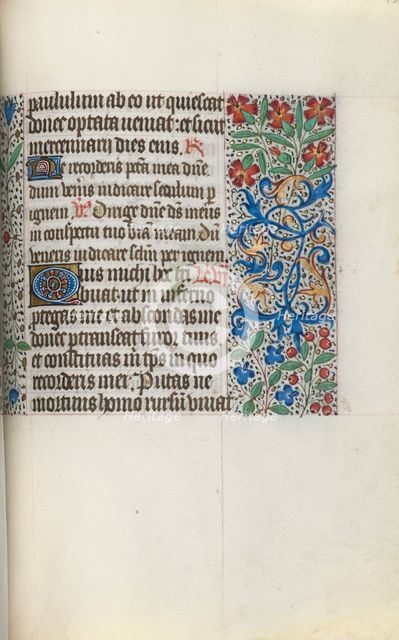 paululum ab eo ut quiescat
donec optata veniat: et sicut
mercennarij dies eius. R
Ne recorderis pctā mea dñe
dum veneris iudicare seculum p
ignem Vs Dirige dñe ds meus
in conspectu tuo viā meam. Dū
veneris iudicare sclm per ignem
Quis michi hoc
buat ut in inferno
ptegas me et abscondas me
donec ptranseat furor tuus.
et constituas m tps in quo
recorderis mei. Putas ne
mortuus homo rursū vivat
heritage
Images